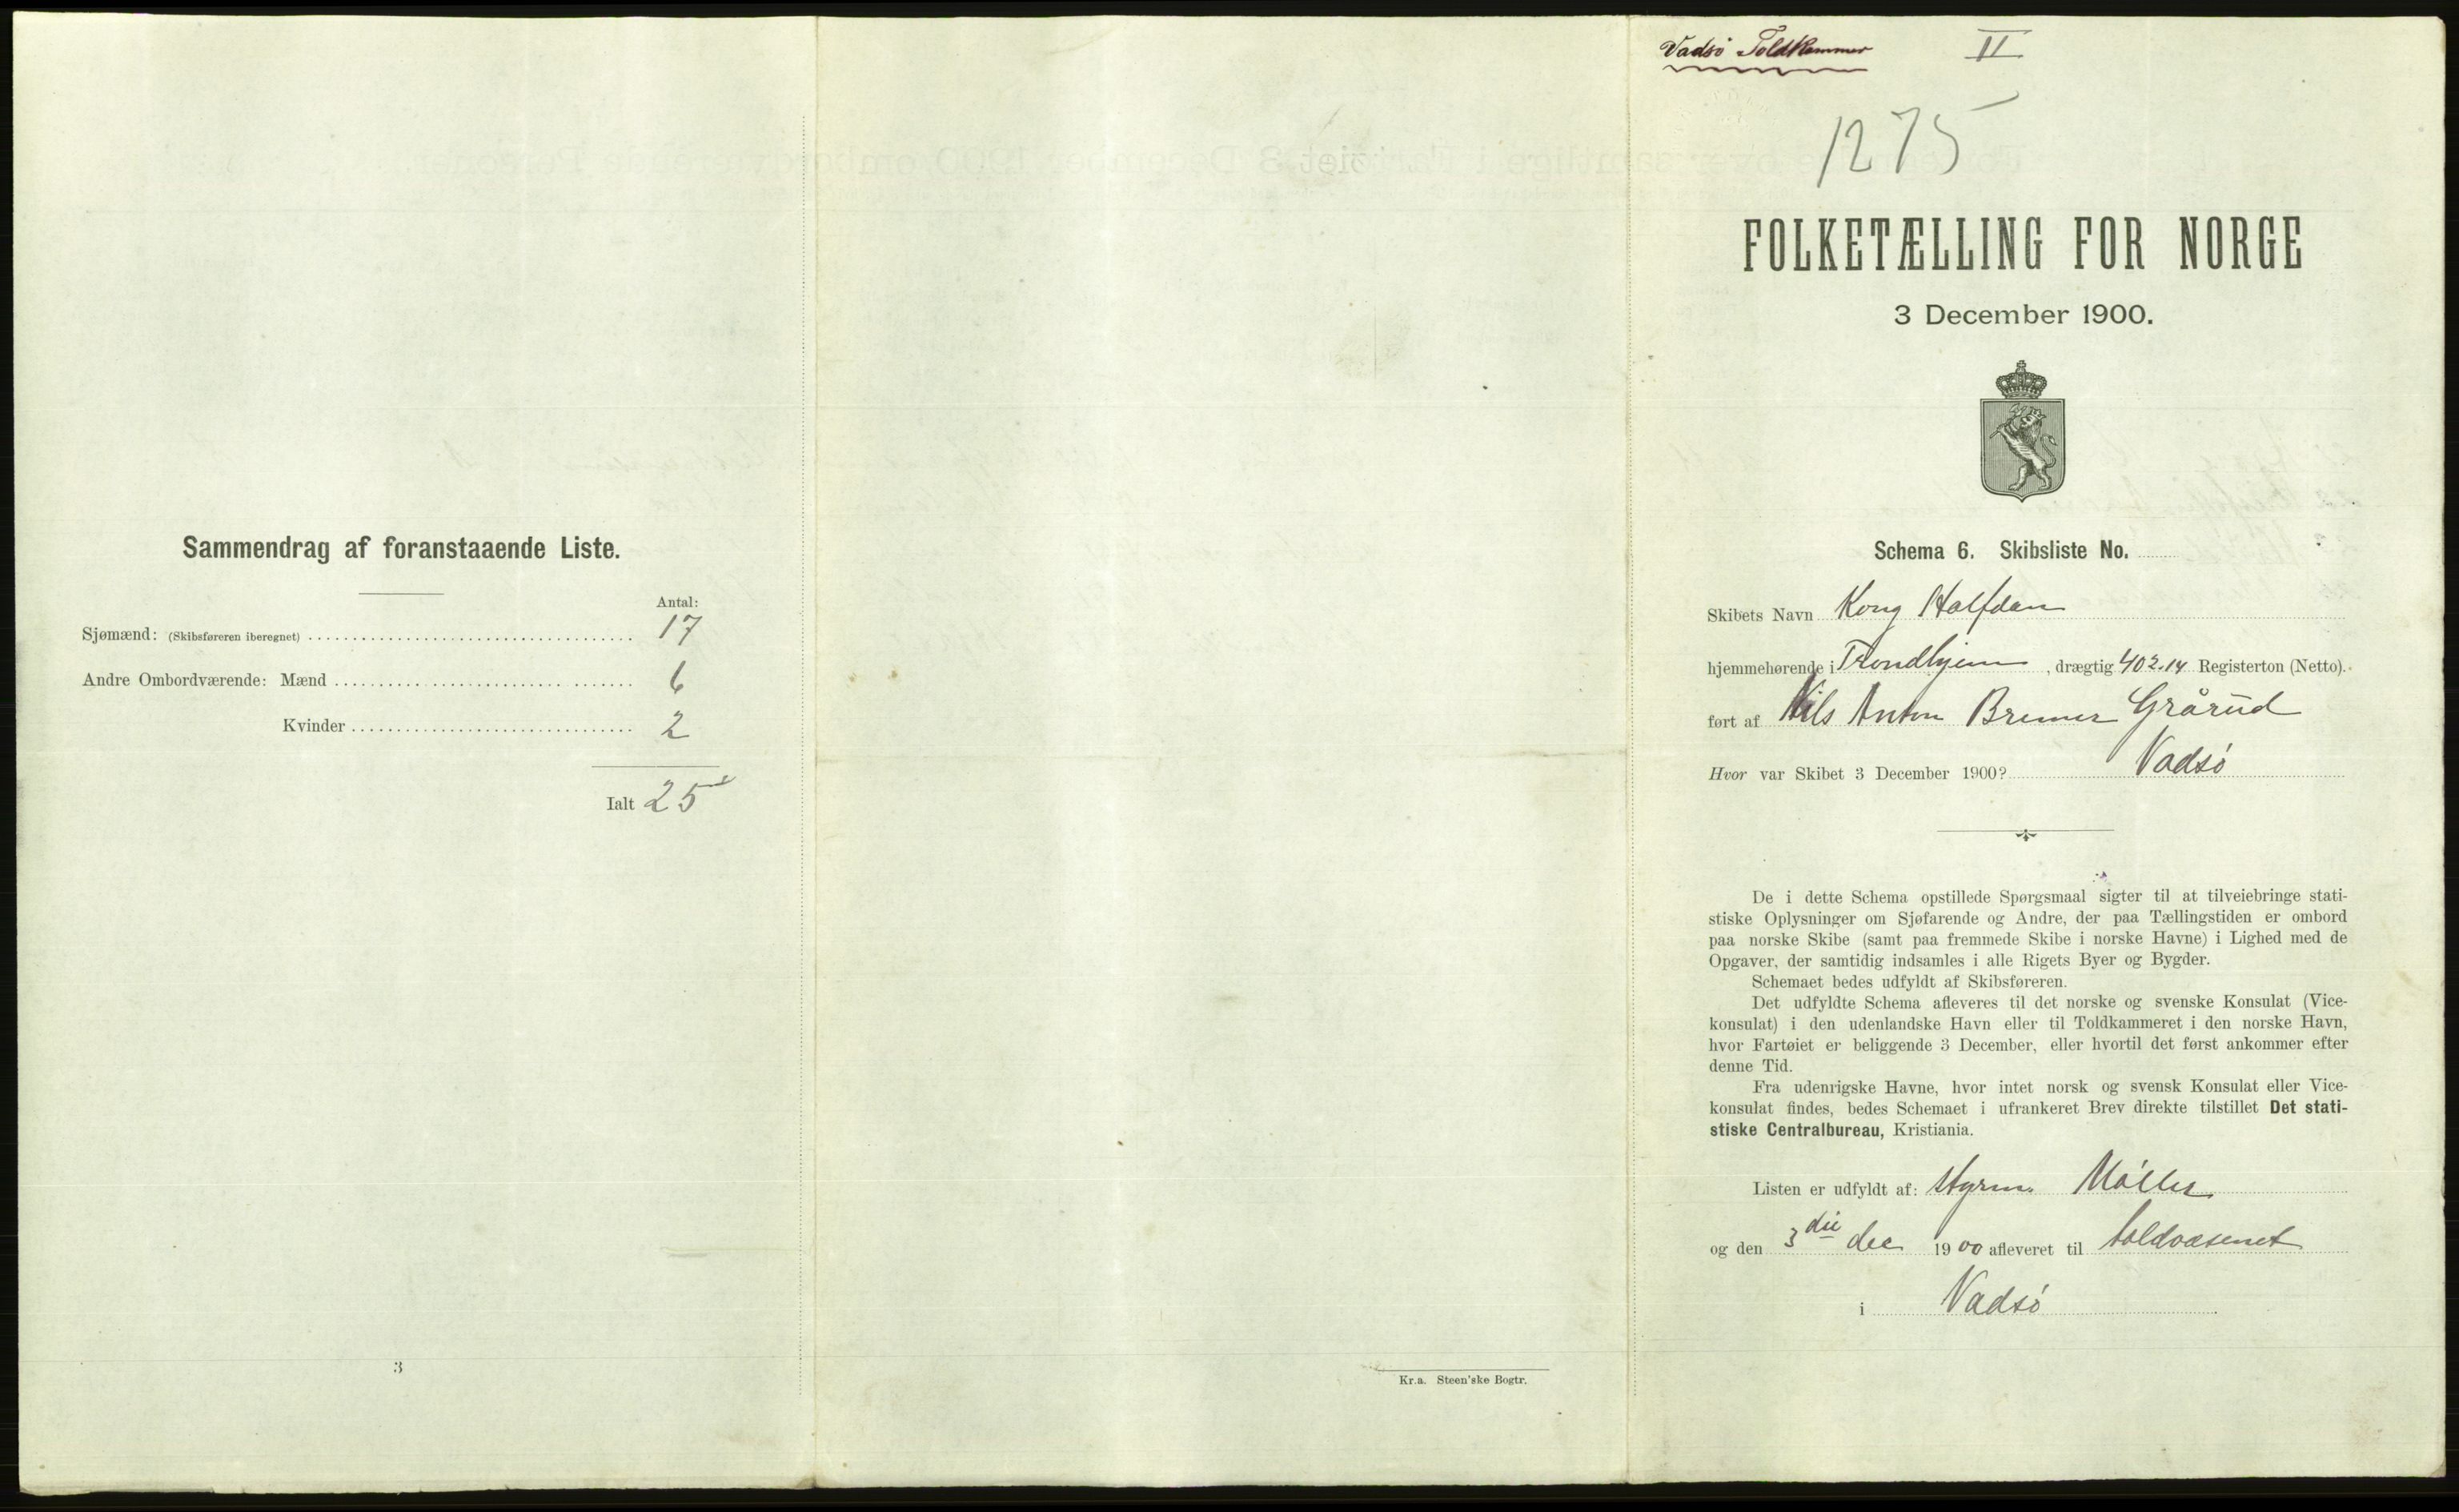 Sammendrag af foranstaaende Liste.
Antal:
Sjømænd: (Skibsføreren iberegnet) 17
Andre Ombordværende: Mænd 6
Kvinder 2
Ialt 25
3
Kr.a. Steen'ske Bogtr.
Vadsö Toldkammer II
1275
FOLKETÆLLING FOR NORGE
3 December 1900.
Schema 6. Skibsliste No.
Skibets Navn Kong Halfdan
hjemmehørende i Trondhjem, drægtig 402.14 Registerton (Netto).
ført af Nils Anton Bremer Grårud
Hvor var Skibet 3 December 1900? Vadsö
De i dette Schema opstillede Spørgsmaal sigter til at tilveiebringe stati-
stiske Oplysninger om Sjøfarende og Andre, der paa Tællingstiden er ombord
paa norske Skibe (samt paa fremmede Skibe i norske Havne) i Lighed med de
Opgaver, der samtidig indsamles i alle Rigets Byer og Bygder.
Schemaet bedes udfyldt af Skibsføreren.
Det udfyldte Schema afleveres til det norske og svenske Konsulat (Vice-
konsulat) i den udenlandske Havn eller til Toldkammeret i den norske Havn,
hvor Fartøiet er beliggende 3 December, eller hvortil det først ankommer efter
denne Tid.
Fra udenrigske Havne, hvor intet norsk og svensk Konsulat eller Vice-
konsulat findes, bedes Schemaet i ufrankeret Brev direkte tilstillet Det stati-
stiske Centralbureau, Kristiania.
Listen er udfyldt af: Styrm. Möller
og den 3die dec 1900 afleveret til toldvæsenet
i Vadsö